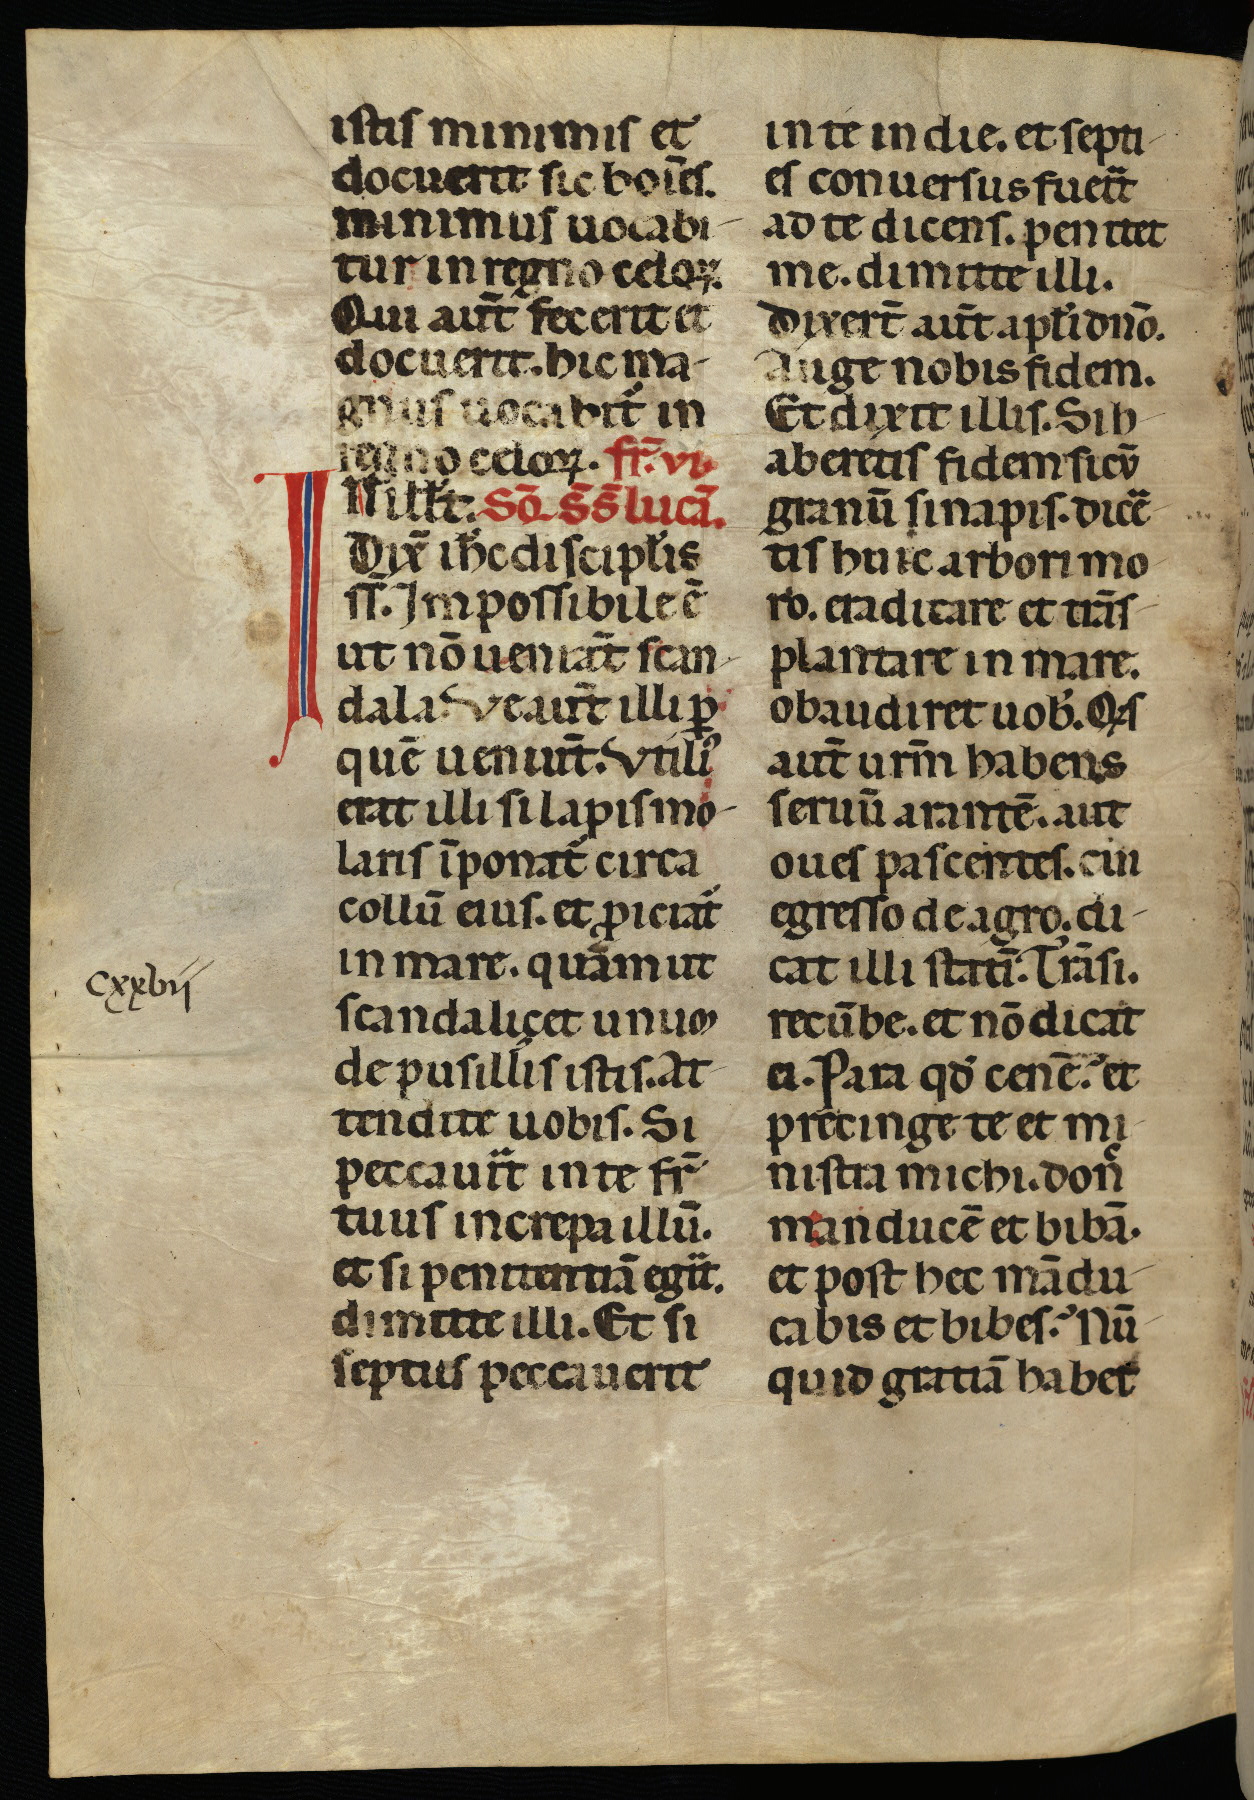 istis minimis et
docuerit sic hoīes.
minimus uocabi-
tur in regno celoꝝ.
Qui aut̄ fecerit et
docuerit. hic ma-
gnus uocabit̉ in
regno celoꝝ. fr̄. vi.
N ill̉ t̄. Sō. S̄S̄ lucā.
Dix̄ ih̄c discipl̉is
ss̄. Impossibile ē
ut nō ueniāt scan-
dala. Ve aut̄ illi ꝑ
quē ueniūt. Vtiliꝰ
erat illi si lapis mo-
laris īponat̉ circa
collū eius. et ꝓiciat̉
in mare. quām ut
scandalicet unum
de pusill̉is istis. At-
tendite uobis. Si
peccaủit in te fr̄
tuus increpa illū.
et si penitentiā eg̉it.
dimitte illi. Et si
septius peccauerit
in te in die. et septi-
es conuersus fuẻit
ad te dicens. penitet
me. dimitte illi.
Dixer̄t aut̄ apl̉i dn̄o.
Auge nobis fidem.
Et dixit illis. Si h-
aberetis fidem sicū
granū sinapis. dicẻ-
tis huic arbori mo
ro. eradicare et trās-
plantare in mare.
obaudiret uob̉. Qis
aut̄ ur̄m habens
seruū arantē. aut
oues pascentes. cui
egresso de agro. di-
cat illi statī. Trāsi.
recūbe. et nō dicat
ei. Para qd̉ cenē. et
precinge te et mi-
nistra michi. don̄
manducē et bibā.
et post hec mādu-
cabis et bibes. Nū-
quid gratiā habet
cxxvij